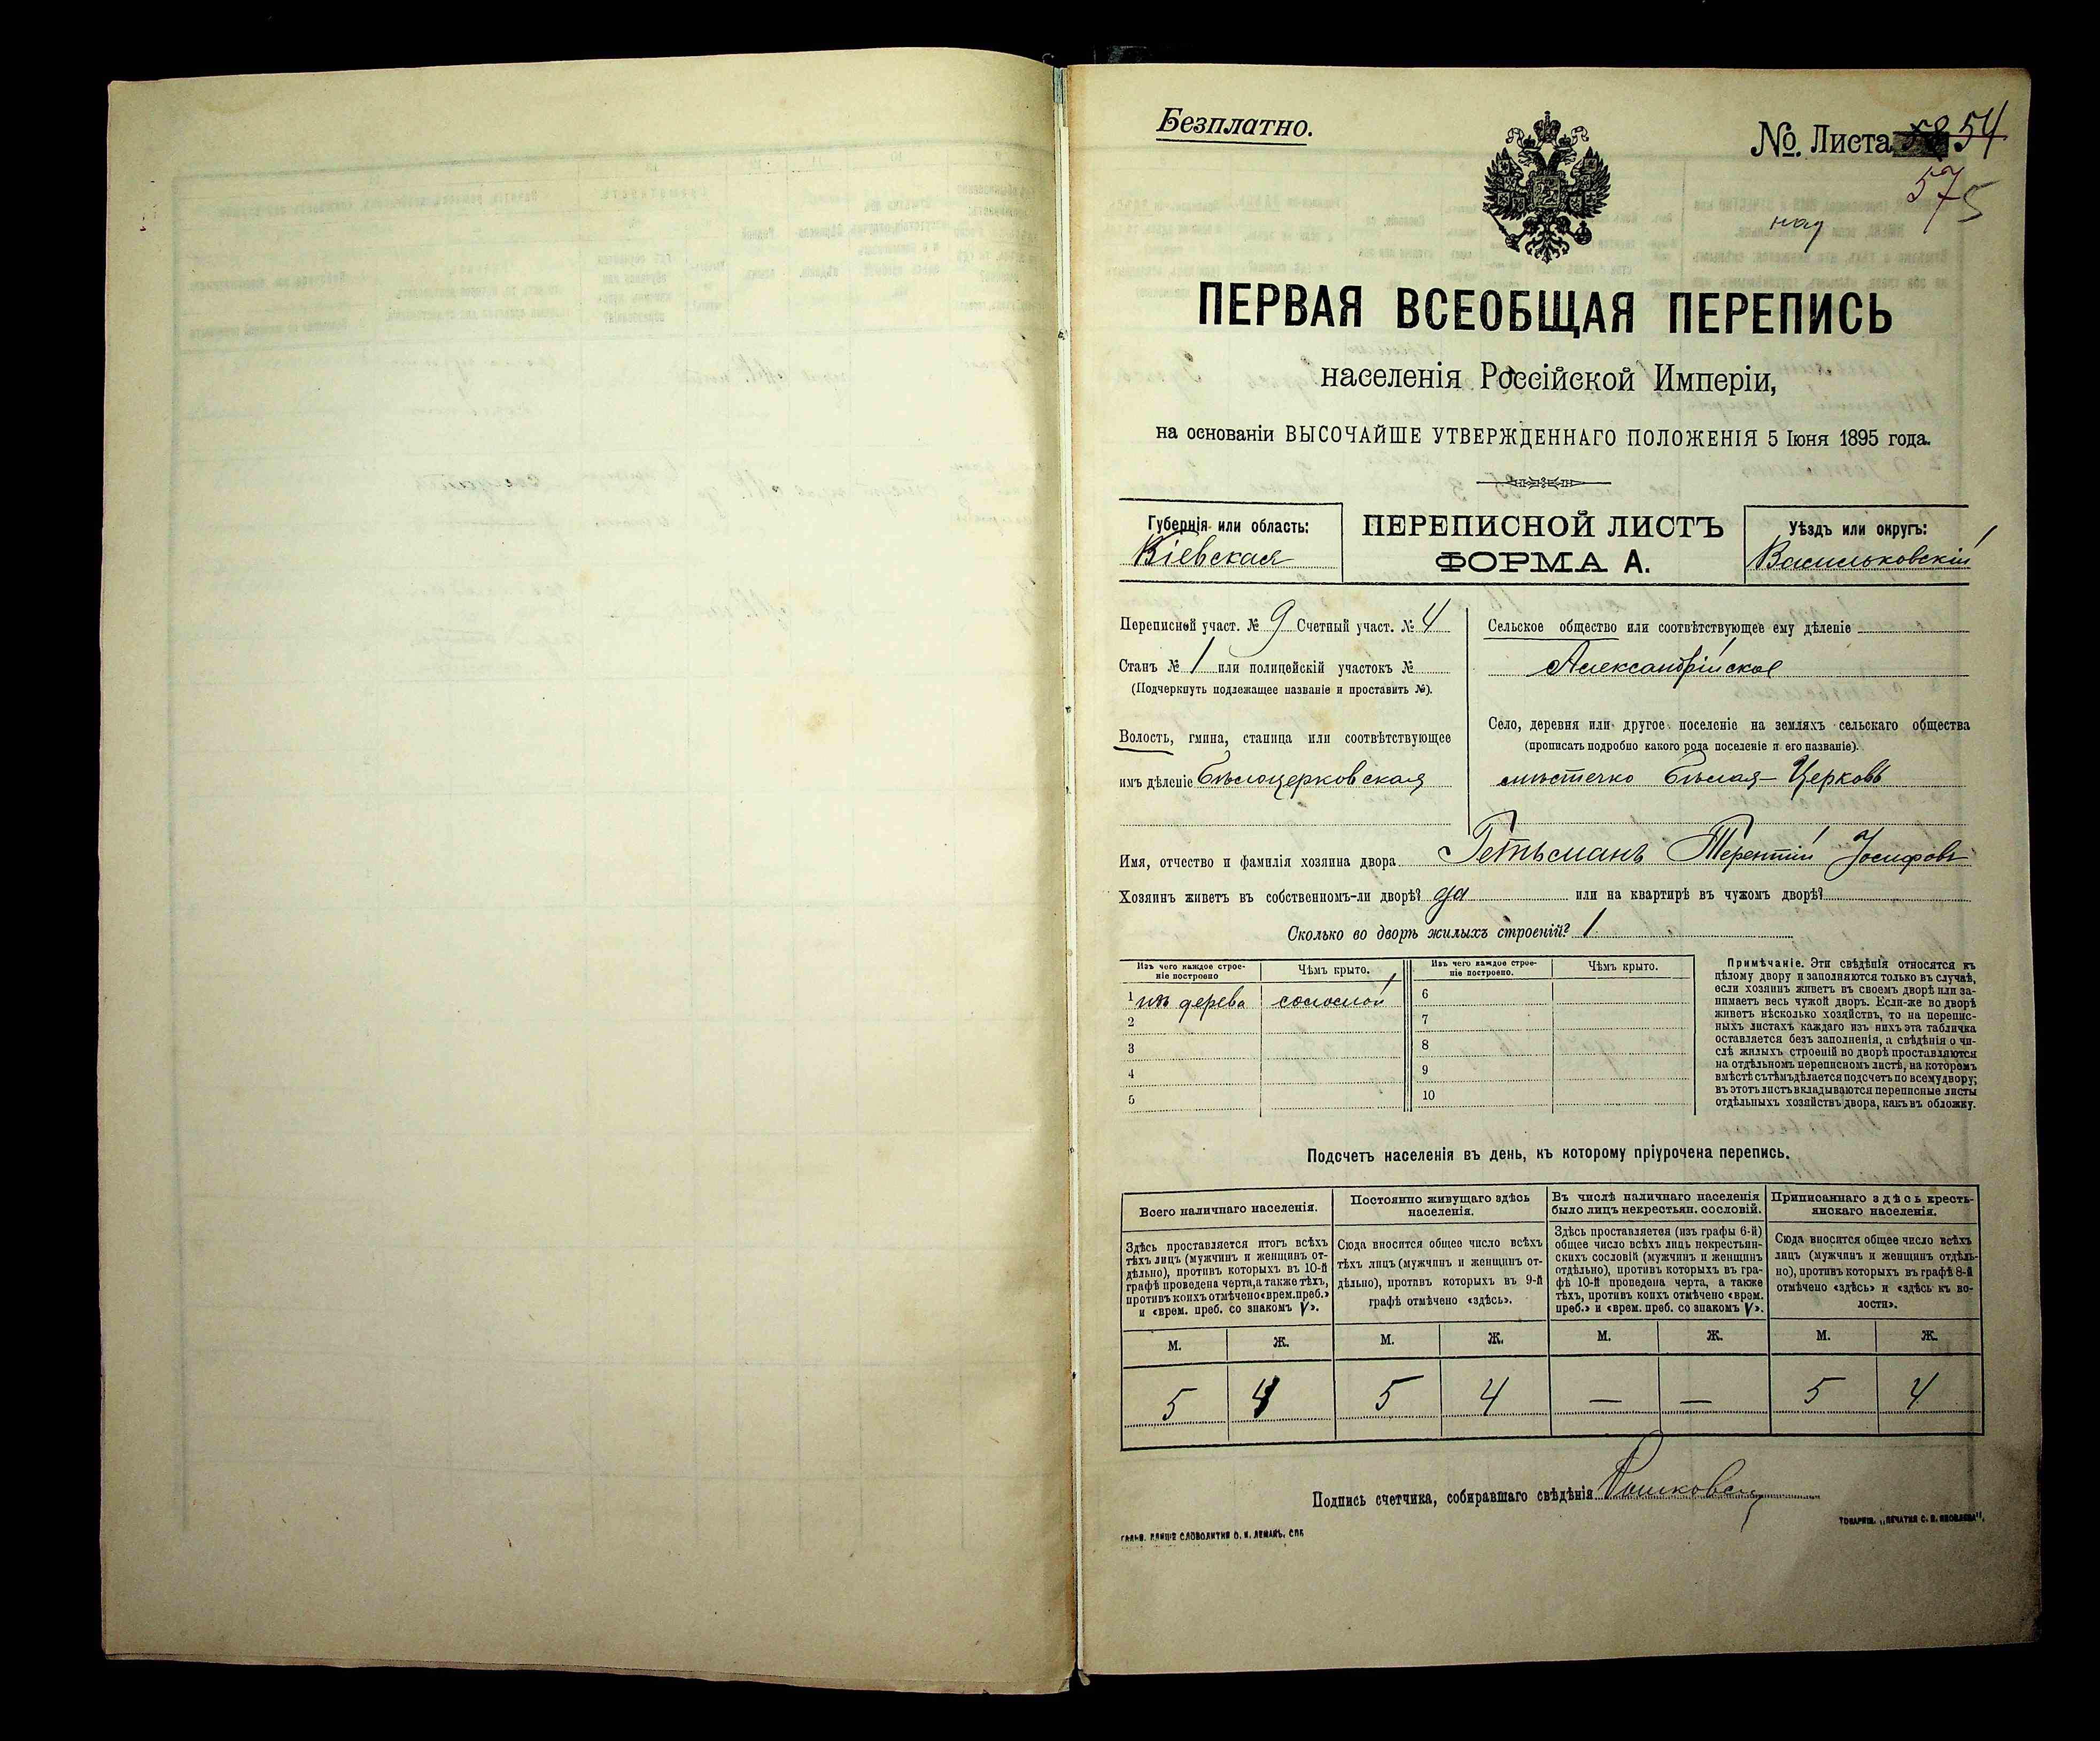 Безплатно.
№. Листа 54
57 5
над
ПЕРВАЯ ВСЕОБЩАЯ ПЕРЕПИСЬ
населенія Россійской Имперіи,
на основаніи ВЫСОЧАЙШЕ УТВЕРЖДЕННАГО ПОЛОЖЕНІЯ 5 Іюня 1895 года.
Губернія или область:
Кіевская
ПЕРЕПИСНОЙ ЛИСТЪ
ФОРМА А.
Уѣздъ или округъ:
Васильковскій
Переписной участ. № 9 Счетный участ. № 4
Станъ № 1 или полицейскій участокъ №
(Подчеркнуть подлежащее названіе и проставить №).
Волость, гмина, станица или соотвѣтствующее
имъ дѣленіе Бѣлоцерковская
Сельское общество или соотвѣтствующее ему дѣленіе
Александрійское
Село, деревня или другое поселеніе на земляхъ сельскаго общества
(прописать подробно какого рода поселеніе и его названіе).
мѣстечко Бѣлая-Церковь
Имя, отчество и фамилія хозяина двора Гетьманъ Терентій Іосифовъ
Хозяинъ живетъ въ собственномъ-ли дворѣ? да или на квартирѣ въ чужомъ дворѣ?
Сколько во дворѣ жилыхъ строеній? 1
Изъ чего каждое строе-
ніе построено
Чѣмъ крыто.
Изъ чего каждое строе-
ніе построено.
Чѣмъ крыто.
1 изъ дерева соломой 6
2 7
3 8
4 9
5 10
Примѣчаніе. Эти свѣдѣнія относятся къ
цѣлому двору и заполняются только въ случаѣ,
если хозяинъ живетъ въ своемъ дворѣ или за-
нимаетъ весь чужой дворъ. Если-же во дворѣ
живетъ нѣсколько хозяйствъ, то на перепис-
ныхъ листахъ каждаго изъ нихъ эта табличка
оставляется безъ заполненія, а свѣдѣнія о чи-
слѣ жилыхъ строеній во дворѣ проставляются
на отдѣльномъ переписномъ листѣ, на которомъ
вмѣстѣ съ тѣмъ дѣлается подсчетъ по всему двору;
въ этотъ листъ вкладываются переписные листы
отдѣльныхъ хозяйствъ двора, какъ въ обложку.
Подсчетъ населенія въ день, къ которому пріурочена перепись.
Всего наличнаго населенія.
Постоянно живущаго здѣсь
населенія.
Въ числѣ наличнаго населенія
было лицъ некрестьян. сословій.
Приписаннаго здѣсь кресть-
янскаго населенія.
Здѣсь проставляется итогъ всѣхъ
тѣхъ лицъ (мужчинъ и женщинъ от-
дѣльно), противъ которыхъ въ 10-й
графѣ проведена черта, а также тѣхъ,
противъ коихъ отмѣчено «врем. преб.»
и «врем. преб. со знакомъ V».
Сюда вносится общее число всѣхъ
тѣхъ лицъ (мужчинъ и женщинъ от-
дѣльно), противъ которыхъ въ 9-й
графѣ отмѣчено «здѣсь».
Здѣсь проставляется (изъ графы 6-й)
общее число всѣхъ лицъ некрестьян-
скихъ сословій (мужчинъ и женщинъ
отдѣльно), противъ которыхъ въ гра-
фѣ 10-й проведена черта, а также
тѣхъ, противъ коихъ отмѣчено «врем.
преб.» и «врем. преб. со знакомъ V».
Сюда вносится общее число всѣхъ
лицъ (мужчинъ и женщинъ отдѣль-
но), противъ которыхъ въ графѣ 8-й
отмѣчено «здѣсь» и «здѣсь къ во-
лости».
М. Ж. М. Ж. М. Ж. М. Ж.
5 4 5 4 — — 5 4
Подпись счетчика, собиравшаго свѣдѣнія
СЛОВОЛИТНЯ О. И. ЛЕМАНЪ, СПБ
ТОВАРИЩ. „ПЕЧАТНЯ С. П. ЯКОВЛЕВА".